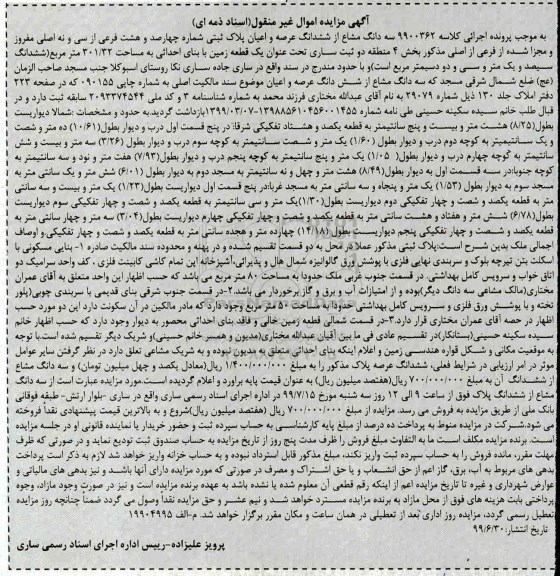 آگهی مزایده اموال غیر منقول(اسناد ذمه ای)
به موجب پرونده اجرائی کلاسه ۹۹۰۰۳۶۲ سه دانگ مشاع از ششدانگ عرصه و اعیان پلاک ثبتی شماره چهارصد و هشت فرعی از سی و نه اصلی مفروز
و مجزا شده از فرعی از اصلی مذکور بخش ۴ منطقه دو ثبت ساری تحت عنوان یک قطعه زمین با بنای احداثی به مساحت ۳۰۱/۳۲ متر مربع(ششدانگ
سیصد و یک متر و سی و دو دسیمتر مربع است)و با حدود مندرج در سند واقع در ساری جاده ساری نکا روستای اسبوکلا جنب مسجد صاحب الزمان
(عج) ضلع شمال شرقی مسجد که سه دانگ مشاع از شش دانگ عرصه و اعیان موضوع سند مالکیت اصلی به شماره چاپی ۰۹۰۱۵۵ که در صفحه ۲۲۳
دفتر املاک جلد ۱۳۰ ذیل شماره ۲۹۰۷۹ به نام آقای عبدالله مختاری فرزند محمد به شماره شناسنامه ۳ و کد ملی ۲۰۹۳۳۷۴۵۴۴ سابقه ثبت دارد و در
قبال طلب خانم سیده سکینه حسینی طی نامه شماره ۱۳۹۸۸۵۶۱۰۴۵۶۰۰۱۴۵۵-۱۳۹۹/۰۳/۰۷بازداشت گردید.به حدود و مشخصات :شمالا دیواریست
(۸/۲۵) هشت متر و بیست و پنج سانتیمتر به قطعه یکصد و هشتاد تفکیکی شرقا: در پنج قسمت اول درب و دیوار بطول (۱۰/۶۱) ده متر و شصت
و یک سانتیمیتر به کوچه دوم درب و دیوار بطول (۱/۶۰) یک متر و شصت سانتیمتر به کوچه سوم درب و دیوار بطول (۳/۲۶) سه متر و بیست و شش
سانتیمتر به کوچه چهارم درب و دیوار بطول (۱/۰۵ )یک متر و پنج سانتیمتر به کوچه پنجم درب و دیوار بطول(۷/۹۳) هفت متر و نود و سه سانتیمتر به
کوچه جنوبا:در سه قسمت اول به دیوار بطول(۸/۴۹) هشت متر و چهل و نه سانتیمتر به مسجد دوم به دیوار بطول (۶/۰۱) شش متر و یک سانتی به
مسجد سوم به دیوار بطول (۱/۵۳) یک متر و پنجاه و سه سانتی متر به مسجد غربا:در پنج قسمت اول دیواریست بطول(۱/۲۳) یک متر و بیست و سه سانتی
متر به قطعه یکصد و شصت و چهار تفکیکی دوم دیواریست بطول(۱/۳۰)یک متر و سی سانتیمتر به قطعه یکصد و شصت و چهار تفکیکی سوم دیواریست
بطول(۶/۷۸) شش متر و هفتاد و هشت سانتی متر به قطعه یکصد و شصت و چهار تفکیکی چهارم دیواریست بطول(۳/۰۴) سه متر و چهار سانتی متر به
قطعه یکصد و شصت و چهار تفکیکی پنجم دیواریست بطول(۱۴/۱۸) چهارده متر و هجده سانتی متر به قطعه یکصد و شصت و چهار تفکیکی.و اوصاف
اجمالی ملک بدین شرح است:پلاک ثبتی مذکور عملا در محل به دو قسمت تقسیم شده و در پهنه و محدوده سند مالکیت صادره ۱- بنایی مسکونی با
اسکلت بتن تیرچه بلوک و سربندی نهایی فلزی با پوشش ورق گالوانیزه شمال هال و پذیرائی،آشپزخانه اپن تمام کاشی کابینت فلزی ، کف واحد سرامیک دو
اتاق خواب و سرویس کامل بهداشتی. در قسمت جنوب غربی ملک حدودا به مساحت ۸۰ متر مربع می باشد که حسب اظهار این واحد متعلق به آقای عمران
مختاری(مالک مشاعی سه دانگ دیگر)بوده و از امتیازات آب و برق و گاز برخوردار می باشد.۲-در قسمت جنوب شرقی بنای قدیمی با سربندی چوبی(پلور
تخته و با پوشش ورق فلزی و سرویس کامل بهداشتی حدودا به مساحت ۸۰ متر مربع وجود دارد که مادر مالکین در آن سکونت دارد این دو مورد حسب
اظهار در حصه آقای عمران مختاری قرار دارد.۳-در قسمت شمالی قطعه زمین خالی و فاقد بنای احداثی محصور به دیوار وجود دارد که حسب اظهار خانم
سیده سکینه حسینی(بستانکار)در تقسیم عادی فی ما بین آقایان عبدالله مختاری(مدیون و همسر خانم حسینی)و شریک دیگر تقسیم شده است.با توجه
به موقعیت مکانی و شکل قواره هندسی زمین و اعلام اینکه بنای احداثی متعلق به مدیون نبوده و به شریک مشاعی تعلق دارد در نظر گرفتن سایر عوامل
موثر در امر ارزیابی در شرایط فعلی، ششدانگ عرصه پلاک مذکور را به مبلغ ۱/۴۰۰/۰۰۰/۰۰۰ ریال(معادل یکصد و چهل میلیون تومان) و سه دانگ مشاع
از ششدانگ آن به مبلغ ۷۰۰/۰۰۰/۰۰۰ ریال(هفتصد میلیون ریال) به عنوان قیمت پایه برآورد و اعلام گردیده است.مورد مزایده عبارت است از سه دانگ
مشاع از ششدانگ پلاک فوق از ساعت ۹ الی ۱۲ روز سه شنبه مورخ ۹۹/۷/۱۵ در اداره اجرای اسناد رسمی ساری واقع در ساری -بلوار ارتش- طبقه فوقانی
بانک ملی از طریق مزایده به فروش می رسد. مزایده از مبلغ ۷۰۰/۰۰۰/۰۰۰ ریال (هفتصد میلیون ریال)شروع و به بالاترین قیمت پیشنهادی نقداً فروخته
می شود.شرکت در مزایده منوط به پرداخت ده درصد از مبلغ پایه کارشناسی به حساب سپرده ثبت و حضور خریدار یا نماینده قانونی او در جلسه مزایده
است. برنده مزایده مکلف است ما به التفاوت مبلغ فروش را ظرف مدت پنج روز از تاریخ مزایده به حساب صندوق ثبت تودیع نماید و در صورتی که ظرف
مهلت مقرر، مانده فروش را به حساب سپرده ثبت واریز نکند، مبلغ مذکور قابل استرداد نبوده و به حساب خزانه واریز خواهد شد لازم به ذکر است پرداخت
بدهی های مربوط به آب، برق، گاز اعم از حق انشعاب و یا حق اشتراک و مصرف در صورتی که مورد مزایده دارای آنها باشد و نیز بدهی های مالیاتی و
عوارض شهرداری و غیره تا تاریخ مزایده اعم از اینکه رقم قطعی آن معلوم شده یا نشده باشد به عهده برنده مزایده است و نیز در صورت وجود مازاد، وجوه
پرداختی بابت هزینه های فوق از محل مازاد به برنده مزایده مسترد خواهد شد و نیم عشر و حق مزایده نقداً وصول می گردد ضمناً چنانچه روز مزایده
تعطیل رسمی گردد، مزایده روز اداری بعد از تعطیلی در همان ساعت و مکان مقرر برگزار خواهد شد. م-الف ۱۹۹۰۴۹۹۵
تاریخ انتشار:۹۹/۶/۳۰
پرویز علیزاده-رییس اداره اجرای اسناد رسمی ساری